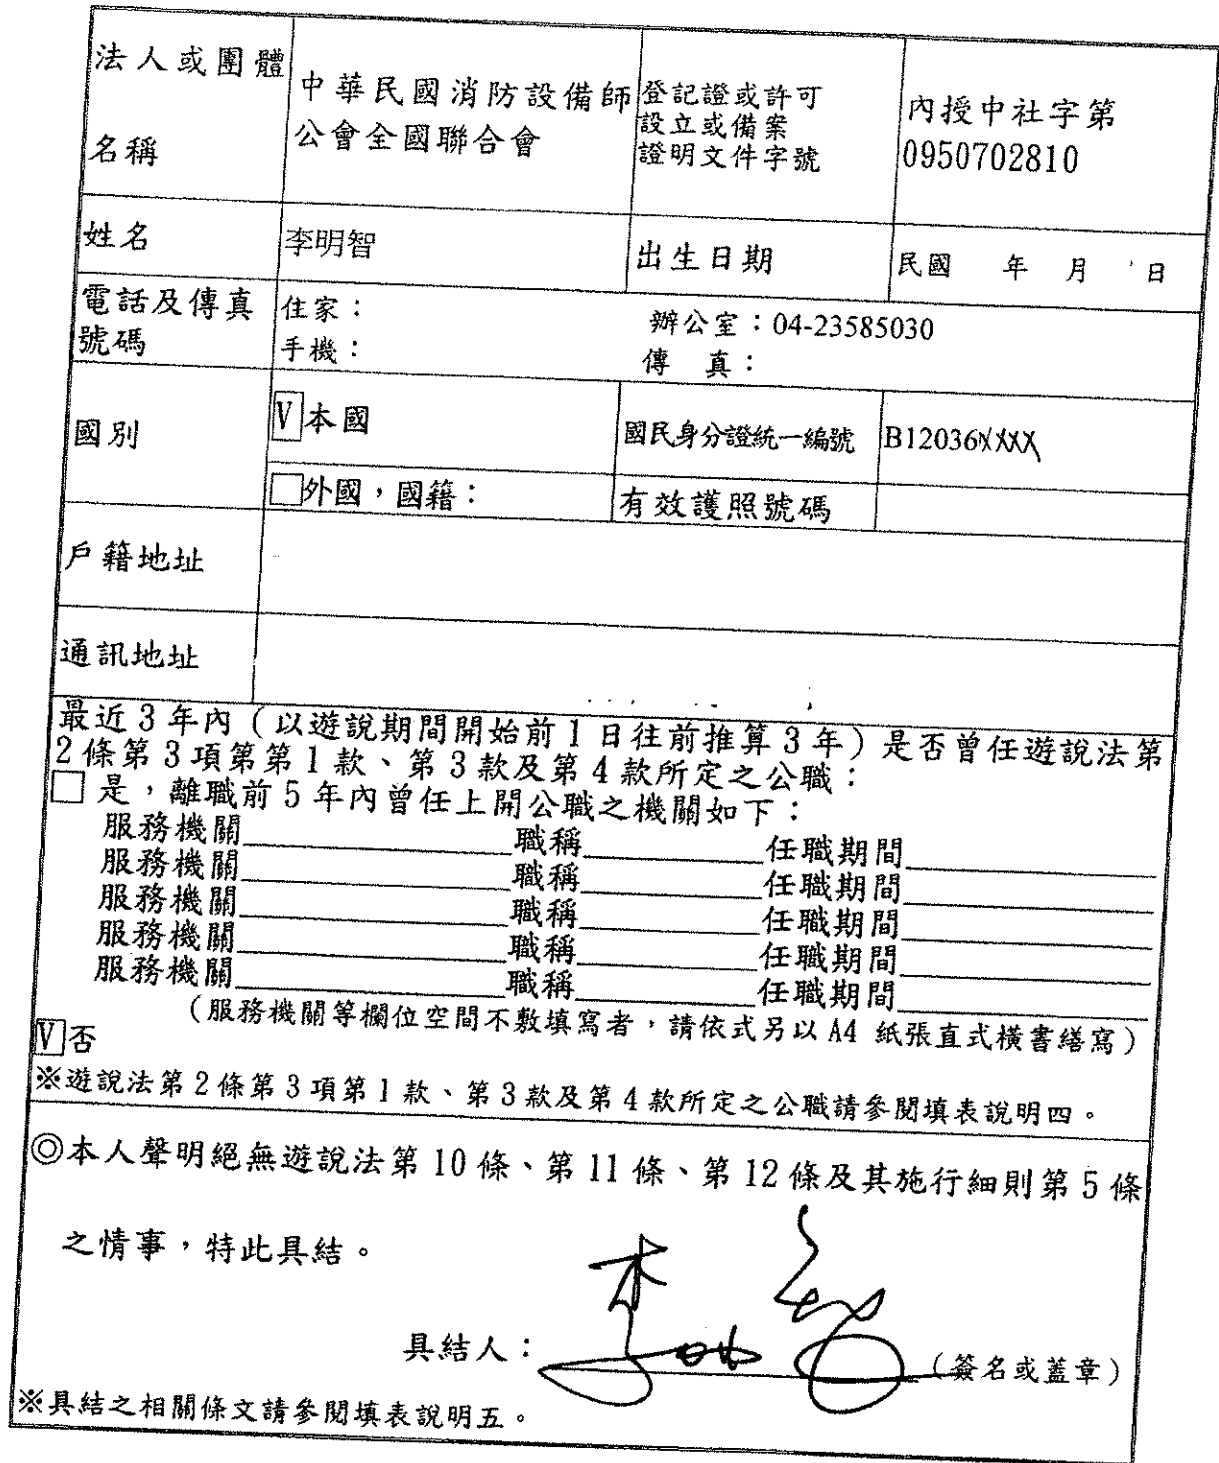 法人或團體
名稱
中華民國消防設備師
公會全國聯合會
登記證或許可
設立或備案
證明文件字號
內授中社字第
0950702810
姓名
李明智
出生日期
民國 年 月 日
電話及傳真
號碼
住家：
辦公室：04-23585030
手機：
傳 真：
國別
V本國
國民身分證統一編號
B12036XXXX
□外國，國籍：
有效護照號碼
戶籍地址
通訊地址
最近3年內（以遊說期間開始前1日往前推算3年）是否曾任遊說法第
2條第3項第第1款、第3款及第4款所定之公職：
□ 是，離職前5年內曾任上開公職之機關如下：
服務機關＿＿＿＿職稱＿＿＿＿任職期間＿＿＿＿
服務機關＿＿＿＿職稱＿＿＿＿任職期間＿＿＿＿
服務機關＿＿＿＿職稱＿＿＿＿任職期間＿＿＿＿
服務機關＿＿＿＿職稱＿＿＿＿任職期間＿＿＿＿
服務機關＿＿＿＿職稱＿＿＿＿任職期間＿＿＿＿
（服務機關等欄位空間不敷填寫者，請依式另以A4 紙張直式橫書繕寫）
V否
※遊說法第2條第3項第1款、第3款及第4款所定之公職請參閱填表說明四。
◎本人聲明絕無遊說法第10條、第11條、第12條及其施行細則第5條
之情事，特此具結。
具結人：李明智（簽名或蓋章）
※具結之相關條文請參閱填表說明五。